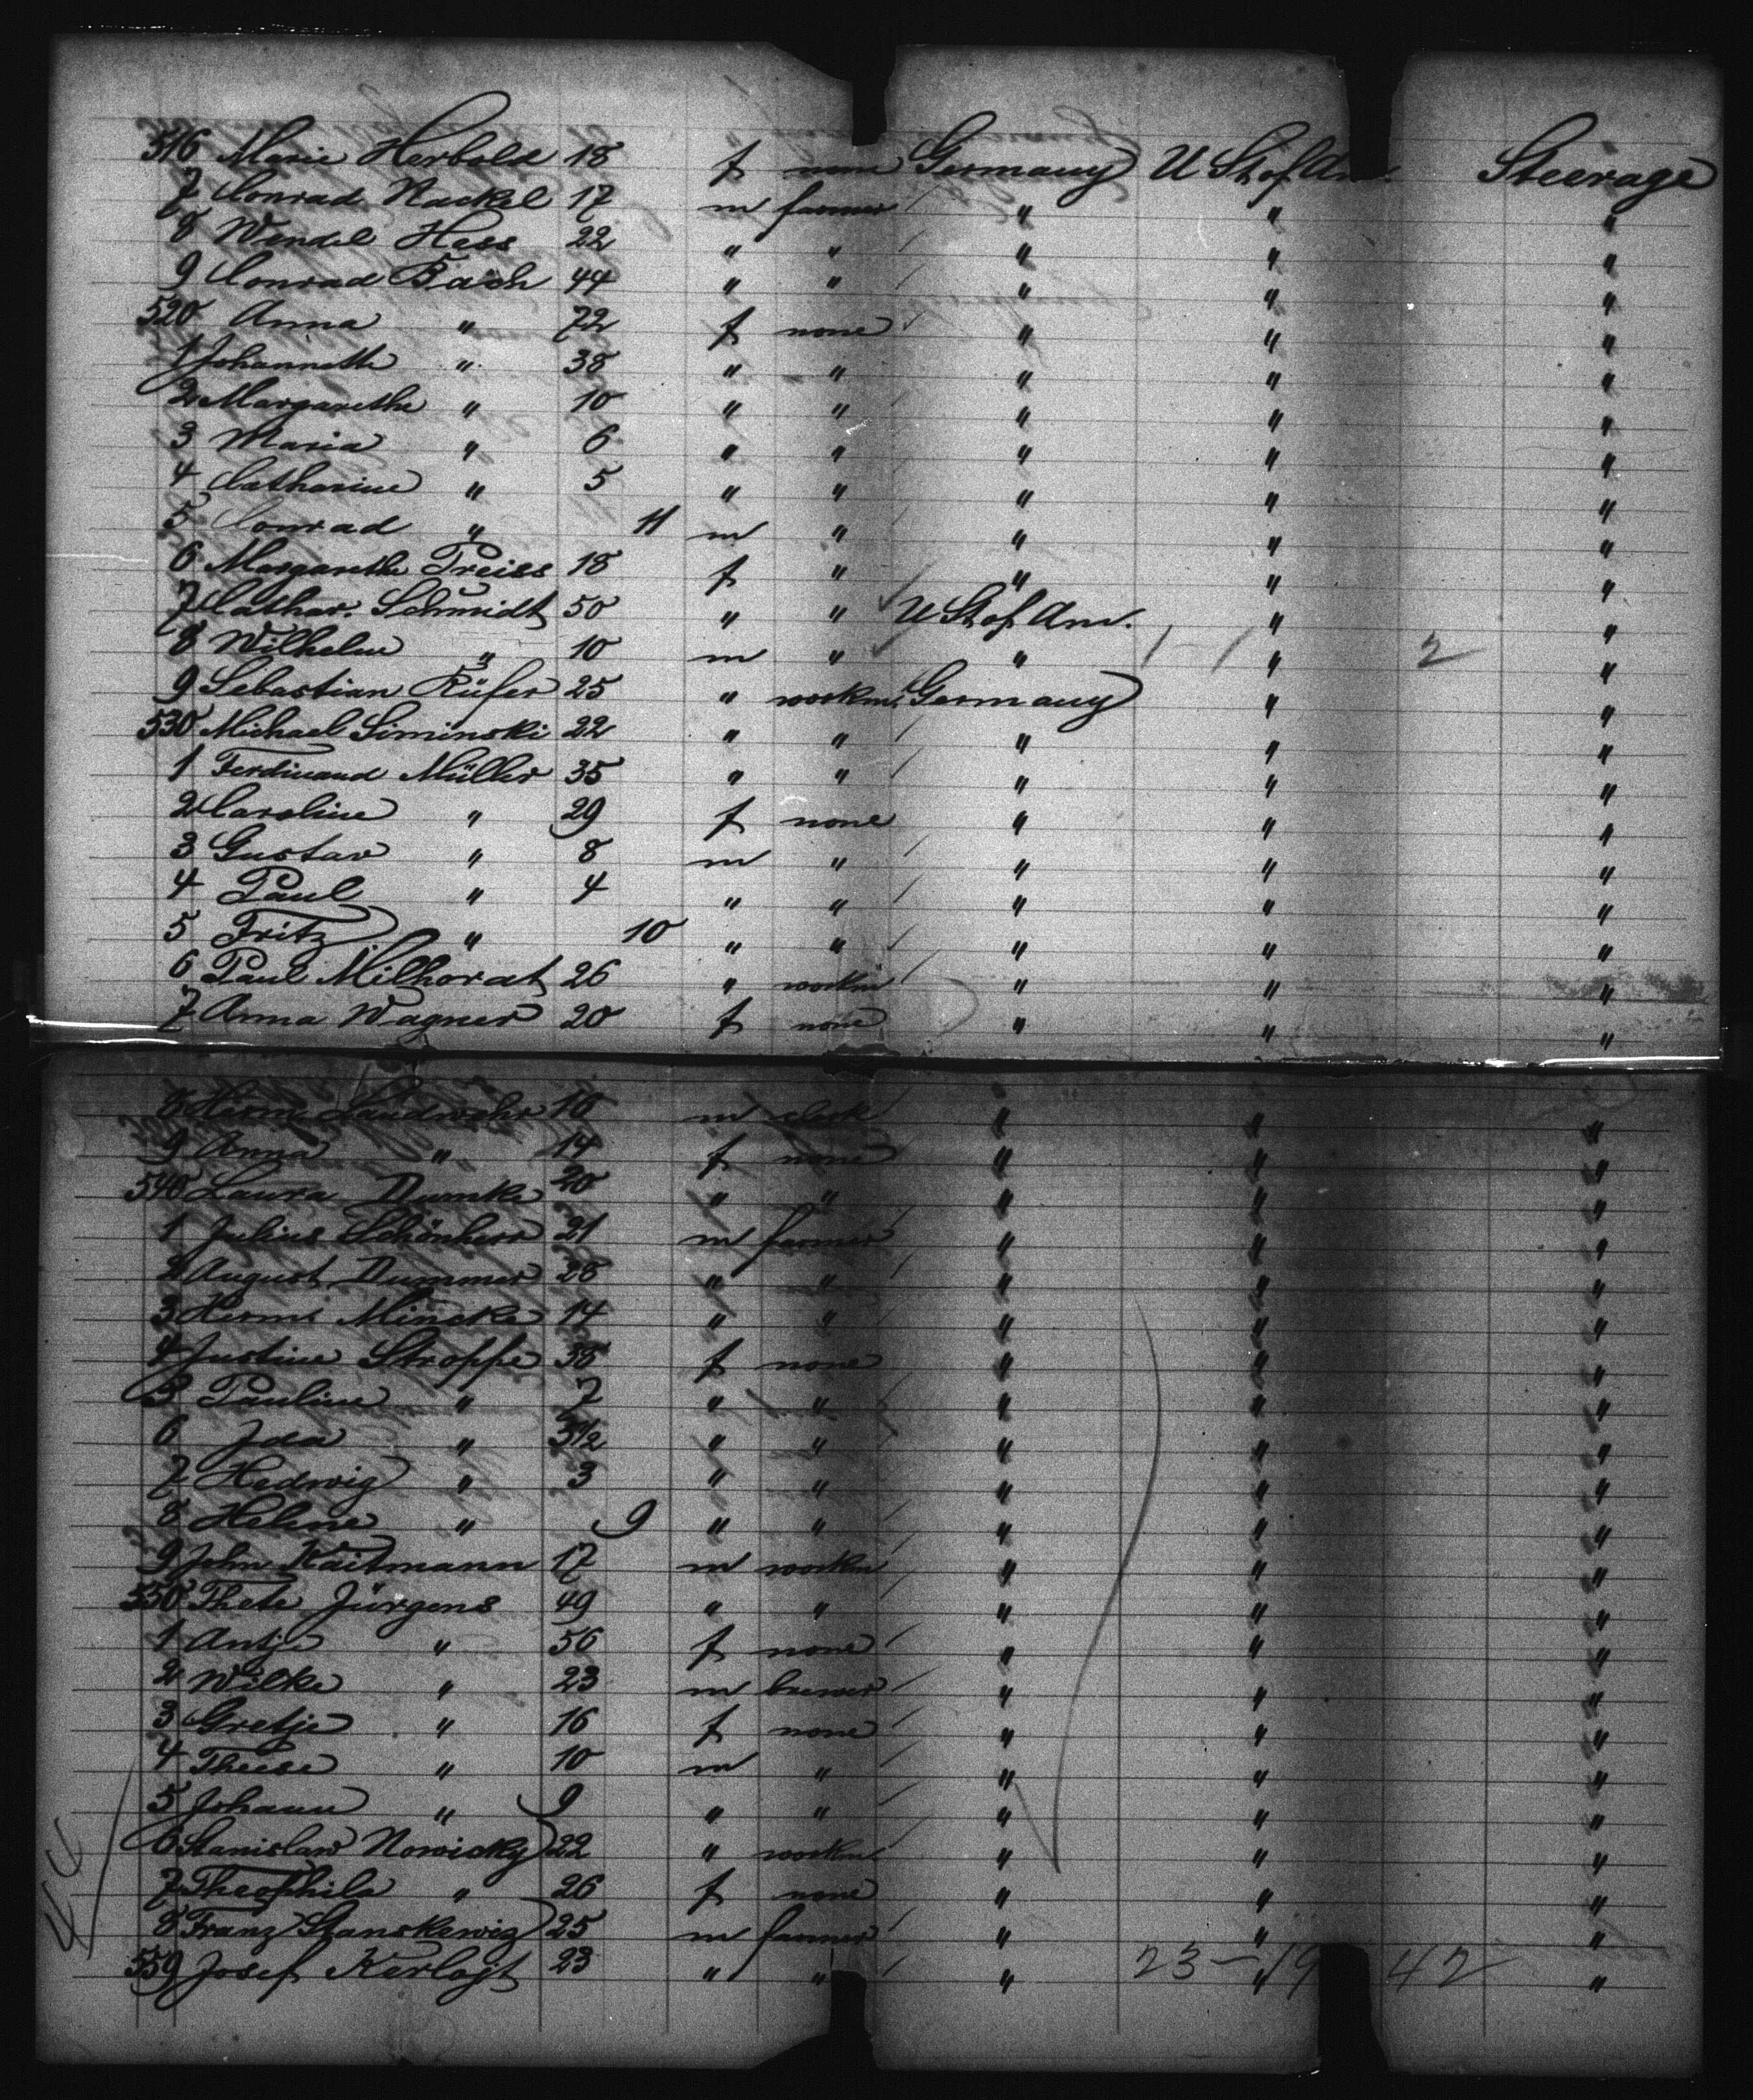 516 Marie Herbold 18 f none Germany U St of Am. Steerage
7 Conrad Nackel 17 m farmer " " "
8 Wendel Hess 22 " " " " "
9 Conrad Bach 44 " " " " "
520 Anna " 72 f none " " "
1 Johannette " 38 " " " " "
2 Margarethe " 10 " " " " "
3 Maria " 6 " " " " "
4 Catharine " 5 " " " " "
5 Conrad " 11 m " " " "
6 Margarethe Preiss 18 f " " " "
7 Cathar. Schmidt 50 " " U St of Am. " "
8 Wilhelm " 10 m " " 1 - 1 " 2 "
9 Sebastian Rüfer 25 " workm. Germany " "
530 Michael Siminski 22 " " " " "
1 Ferdinand Müller 35 " " " " "
2 Caroline " 29 f none " " "
3 Gustav " 8 m " " " "
4 Paul " 4 " " " " "
5 Fritz " 10 " " " " "
6 Paul Milhorat 26 " workm " " "
7 Anna Wagner 20 f none " " "
8 Herm. Landwehr 16 m clerk " " "
9 Anna " 14 f none " " "
540 Laura Dumke 20 " " " " "
1 Julius Schönherr 21 m farmer " " "
2 August Dummer 28 " " " " "
3 Herm. Mincke 14 " " " " "
4 Justine Stroppe 38 f none " " "
5 Pauline " 7 " " " " "
6 Ida " 3 1/2 " " " " "
7 Hedwig " 3 " " " " "
8 Helene " 9 " " " " "
9 John Kaitmann 17 m workm " " "
550 Thete Jürgens 49 " " " " "
1 Antje " 56 f none " " "
2 Wilke " 23 m brewer " " "
3 Gretje " 16 f none " " "
4 Theese " 10 m " " " "
5 Johann " 9 " " " " "
6 Stanislaw Nowicky 22 " workm " " "
7 Theophila " 26 f none " " "
8 Franz Stanskewig 25 m farmer " " "
559 Josef Kerlajt 23 " " " 23 - 19 " 42 "